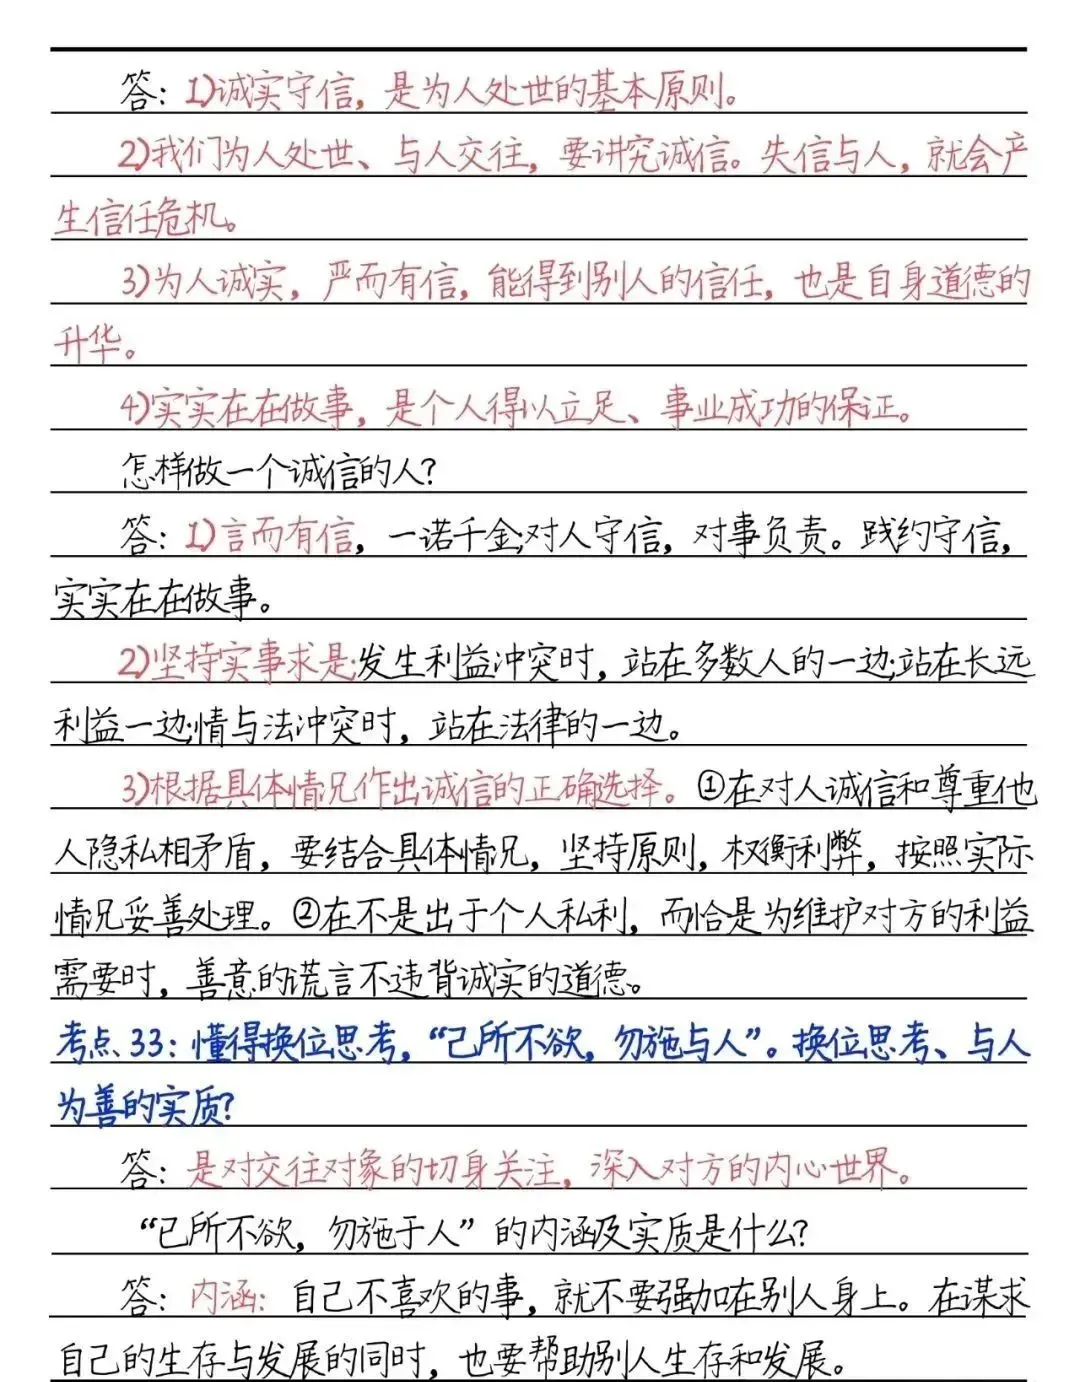 答：1)诚实守信，是为人处世的基本原则。
2)我们为人处世、与人交往，要讲究诚信。失信与人，就会产
生信任危机。
3)为人诚实，严而有信，能得到别人的信任，也是自身道德的
升华。
4)实实在在做事，是个人得以立足、事业成功的保证。
怎样做一个诚信的人？
答：1)言而有信，一诺千金;对人守信，对事负责。践约守信，
实实在在做事。
2)坚持实事求是;发生利益冲突时，站在多数人的一边;站在长远
利益一边;情与法冲突时，站在法律的一边。
3)根据具体情况作出诚信的正确选择。①在对人诚信和尊重他
人隐私相矛盾，要结合具体情况，坚持原则，权衡利弊，按照实际
情况妥善处理。②在不是出于个人私利，而恰是为维护对方的利益
需要时，善意的谎言不违背诚实的道德。
考点33：懂得换位思考，“己所不欲，勿施与人”。换位思考、与人
为善的实质？
答：是对交往对象的切身关注，深入对方的内心世界。
“己所不欲，勿施于人”的内涵及实质是什么？
答：内涵：自己不喜欢的事，就不要强加在别人身上。在谋求
自己的生存与发展的同时，也要帮助别人生存和发展。